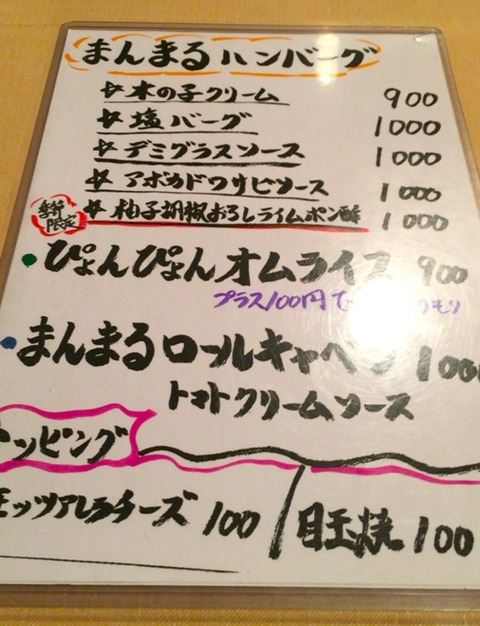 まんまるハンバーグ
☆木の子クリーム 900
☆塩バーグ 1000
☆デミグラスソース 1000
☆アボカドワサビソース 1000
季節限定 ☆柚子胡椒おろしライムポン酢 1000
・ぴょんぴょんオムライス 900
プラス100円で モリ
・まんまるロールキャベツ 1000
トマトクリームソース
トッピング
モッツアレラチーズ 100 / 目玉焼 100